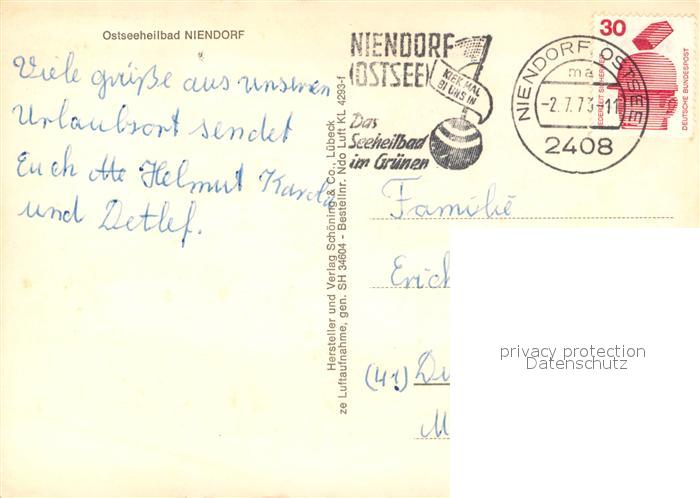 Ostseeheilbad NIENDORF
Viele grüße aus unseren
Urlaubsort sendet
Euch Otto Helmut Karola
und Detlef.
Hersteller und Verlag Schöning & Co., Lübeck
ze Luftaufnahme, gen. SH 34604 - Bestellnr. Ndo Luft KL 4293-f
NIENDORF
(OSTSEE)
KIEK MAL
BI UNS IN
Das
Seeheilbad
im Grünen
NIENDORF, OSTSEE
ma
-2.7.73-11
2408
30
JEDERZEIT SICHERHEIT
DEUTSCHE BUNDESPOST
Familie
Erich
(41) Du
M
privacy protection
Datenschutz